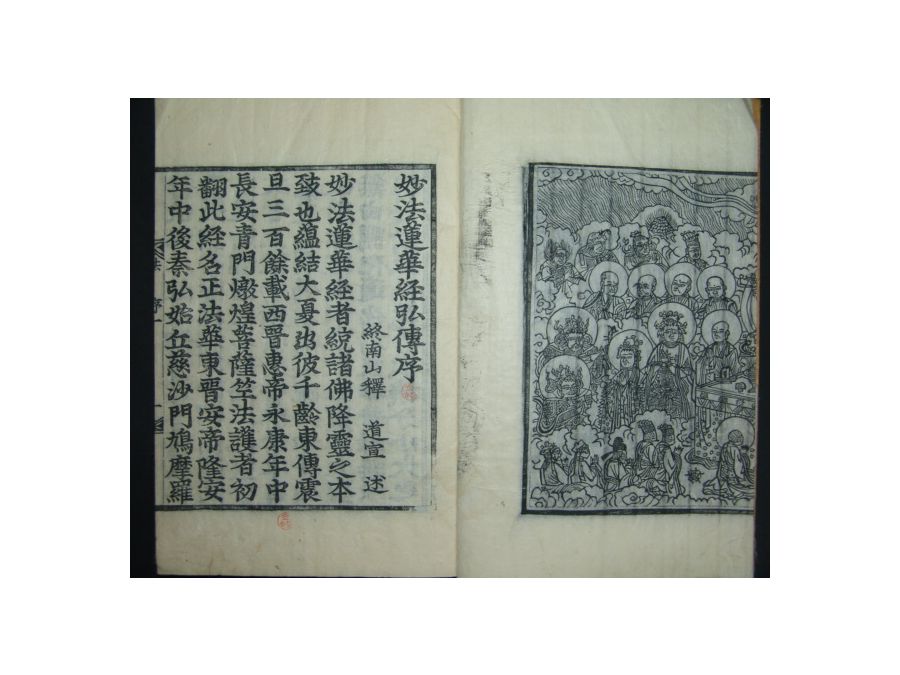 妙法蓮華経弘傳序
終南山釋 道宣 述
妙法蓮華経者統諸佛降靈之本
致也蘊結大夏出彼千齡東傳震
旦三百餘載西晉惠帝永康年中
長安青門燉煌菩薩竺法護者初
翻此經名正法華東晉安帝隆安
年中後秦弘始丘慈沙門鳩摩羅
法 序 一